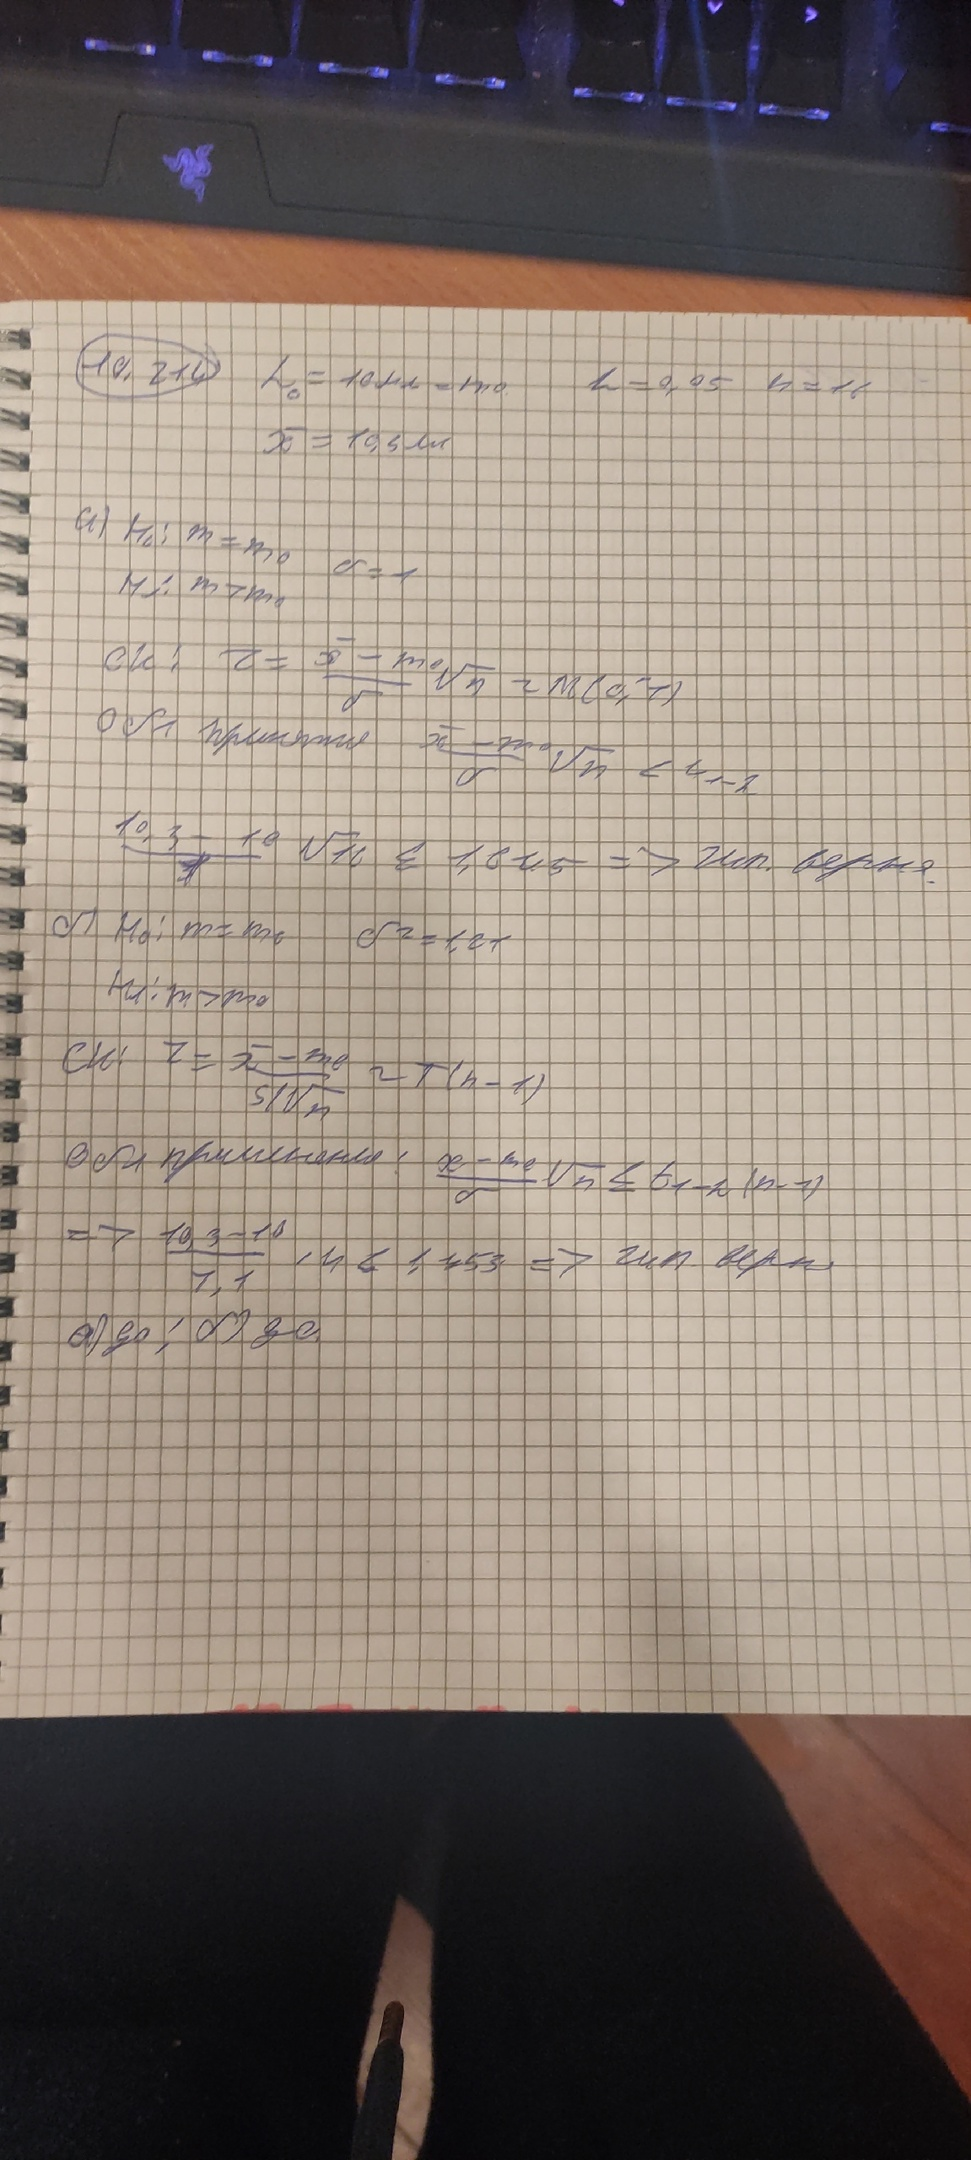 19.214 L₀ = 10 мм = m₀ α = 0,05 n = 16
x̄ = 10,3 мм
а) H₀: m = m₀ σ = 1
H₁: m > m₀
СК: Z = (x̄ − m₀)/σ √n ~ N(0,1)
Обл принятия (x̄ − m₀)/σ √n < u₁₋α
(10,3 − 10)/1 √16 ≤ 1,645 => гип. верна.
б) H₀: m = m₀ σ² = 1,21
H₁: m > m₀
СК: Z = (x̄ − m₀)/(s/√n) ~ T(n−1)
Обл принятия: (x̄ − m₀)/σ √n ≤ t₁₋α(n−1)
=> (10,3 − 10)/1,1 · 4 ≤ 1,753 => гип. верн
а) да; б) да